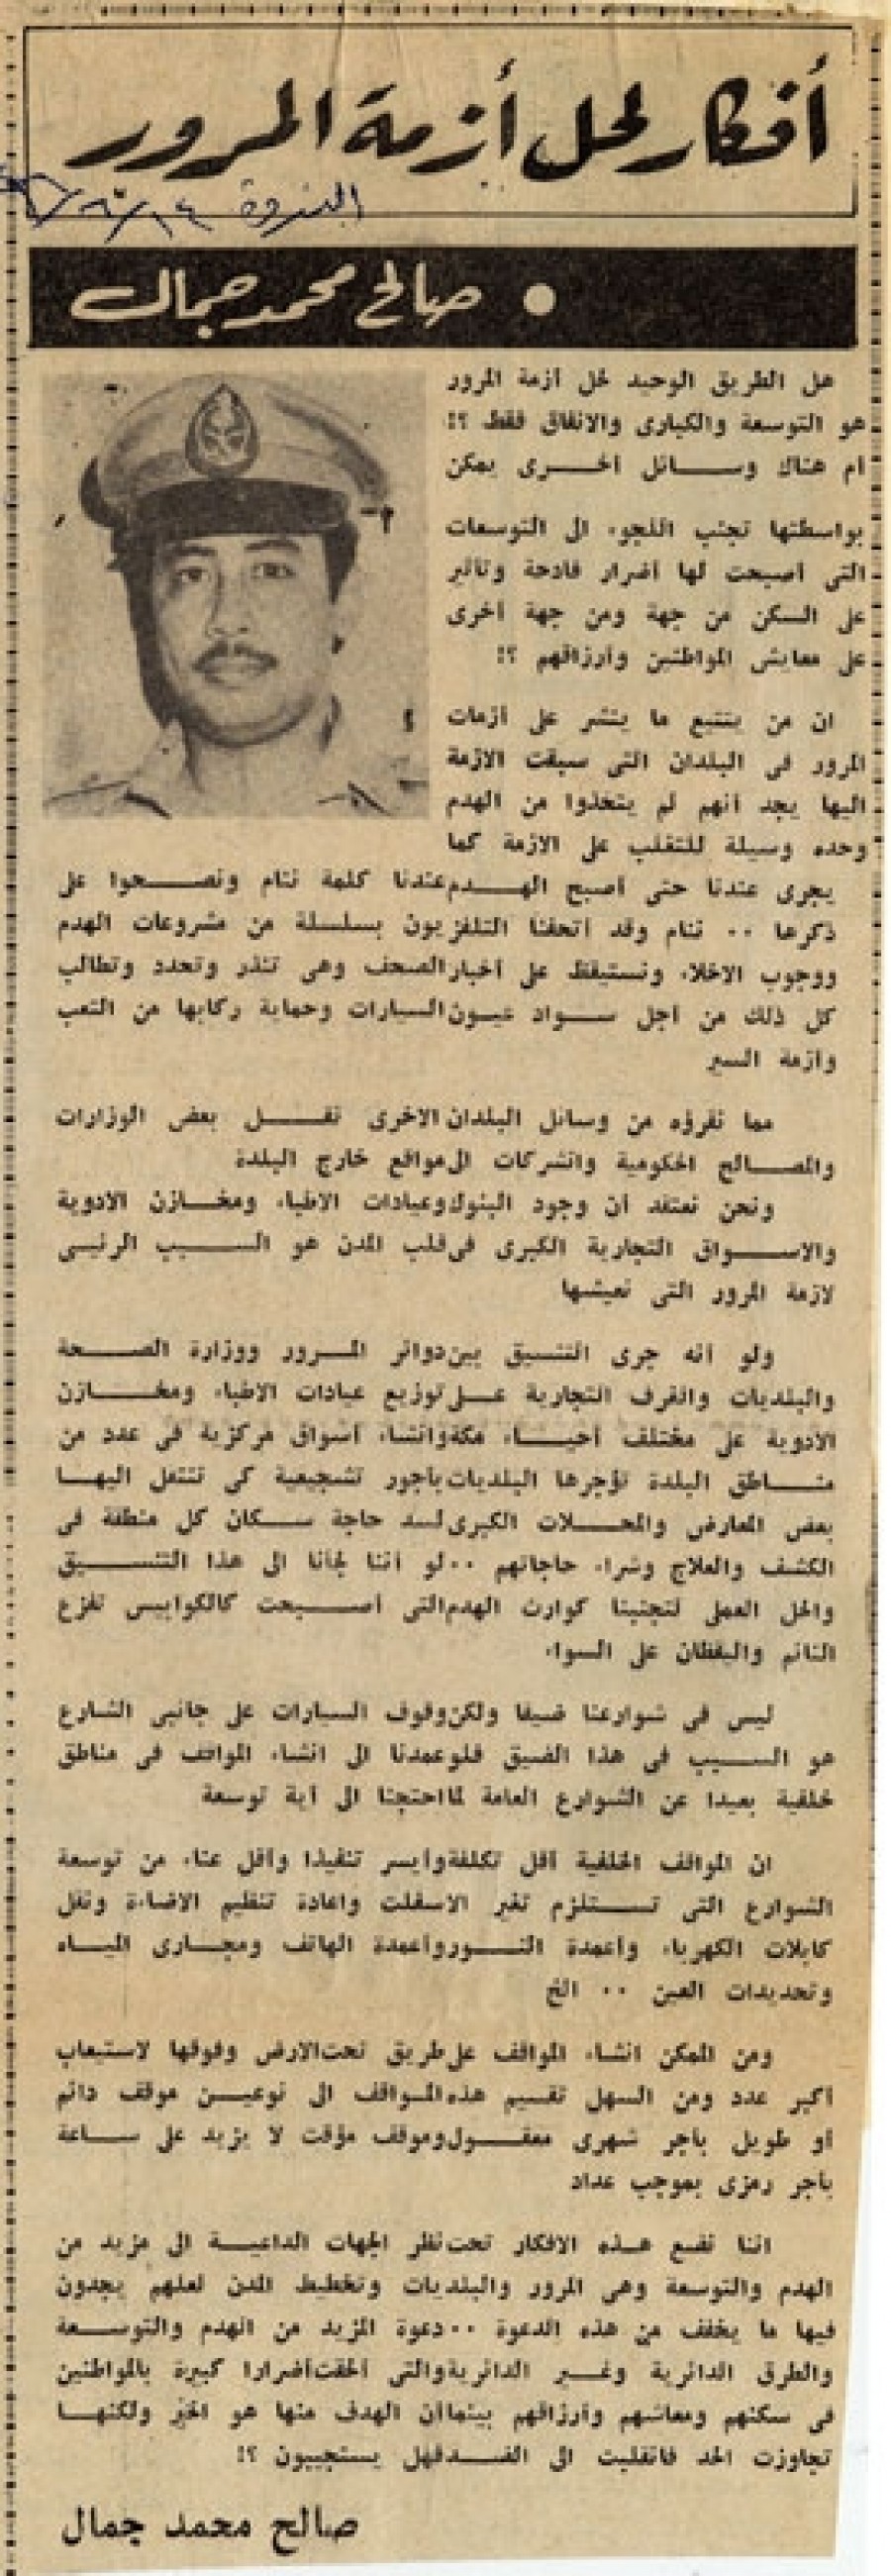 أفكار لحل أزمة المرور
الندوة
صالح محمد جمال
هل الطريق الوحيد لحل أزمة المرور
هو التوسعة والكبارى والانفاق فقط ؟!
أم هناك وسائل أخرى يمكن
بواسطتها تجنب اللجوء الى التوسعات
التى أصبحت لها أضرار فادحة وتأثير
على السكن من جهة ومن جهة أخرى
على معايش المواطنين وأرزاقهم ؟!
ان من يتتبع ما ينشر على أزمات
المرور فى البلدان التى سبقت الازمة
اليها يجد أنهم لم يتخذوا من الهدم
وحده وسيلة للتغلب على الازمة كما
يجرى عندنا حتى أصبح الهدم عندنا كلمة ننام ونصحوا على
ذكرها .. ننام وقد أتحفنا التلفزيون بسلسلة من مشروعات الهدم
ووجوب الاخلاء ونستيقظ على أخبار الصحف وهى تنذر وتحدد وتطالب
كل ذلك من أجل سواد عيون السيارات وحماية ركابها من التعب
وأزمة السير
مما نقرؤه من وسائل البلدان الاخرى نقل بعض الوزارات
والمصالح الحكومية والشركات الى مواقع خارج البلدة
ونحن نعتقد أن وجود البنوك وعيادات الاطباء ومخازن الادوية
والاسواق التجارية الكبرى فى قلب المدن هو السبب الرئيسى
لازمة المرور التى نعيشها
ولو أنه جرى التنسيق بين دوائر المرور ووزارة الصحة
والبلديات والغرف التجارية على توزيع عيادات الاطباء ومخازن
الادوية على مختلف أحياء مكة وانشاء أسواق مركزية فى عدد من
مناطق البلدة تؤجرها البلديات بأجور تشجيعية كى تنتقل اليها
بعض المعارض والمحلات الكبرى لسد حاجة سكان كل منطقة فى
الكشف والعلاج وشراء حاجاتهم .. لو أننا لجأنا الى هذا التنسيق
والحل العملى لتجنبنا كوارث الهدم التى أصبحت كالكوابيس تفزع
النائم واليقظان على السواء
ليس فى شوارعنا ضيقا ولكن وقوف السيارات على جانبى الشارع
هو السبب فى هذا الضيق فلو عمدنا الى انشاء المواقف فى مناطق
خلفية بعيدا عن الشوارع العامة لما احتجنا الى أية توسعة
ان المواقف الخلفية أقل تكلفة وأيسر تنفيذا وأقل عناء من توسعة
الشوارع التى تستلزم تغير الاسفلت واعادة تنظيم الاضاءة ونقل
كابلات الكهرباء وأعمدة النور وأعمدة الهاتف ومجارى المياه
وتحديدات العين .. الخ
ومن الممكن انشاء المواقف على طريق تحت الارض وفوقها لاستيعاب
أكبر عدد ومن السهل تقسيم هذه المواقف الى نوعين موقف دائم
أو طويل بأجر شهرى معقول وموقف مؤقت لا يزيد على ساعة
بأجر رمزى بموجب عداد
اننا نضع هذه الافكار تحت نظر الجهات الداعية الى مزيد من
الهدم والتوسعة وهى المرور والبلديات وتخطيط المدن لعلهم يجدون
فيها ما يخفف من هذه الدعوة .. دعوة المزيد من الهدم والتوسعة
والطرق الدائرية وغير الدائرية والتى ألحقت أضرارا كبيرة بالمواطنين
فى سكنهم ومعاشهم وأرزاقهم بينما أن الهدف منها هو الخير ولكنها
تجاوزت الحد فانقلبت الى الضد فهل يستجيبون ؟!
صالح محمد جمال